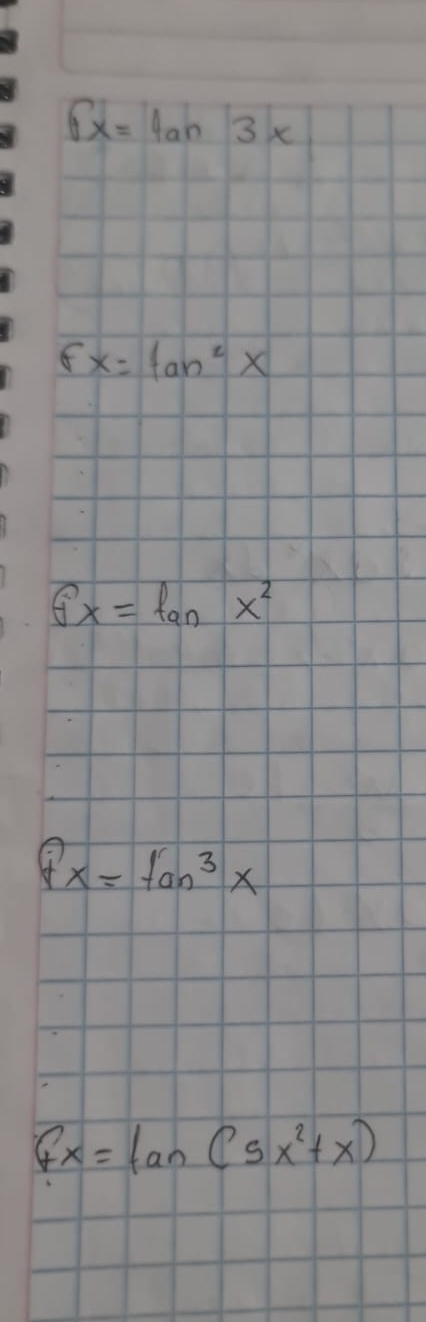 fx = tan 3x
fx = tan² x
fx = tan x²
fx = tan³ x
fx = tan (5x²+x)